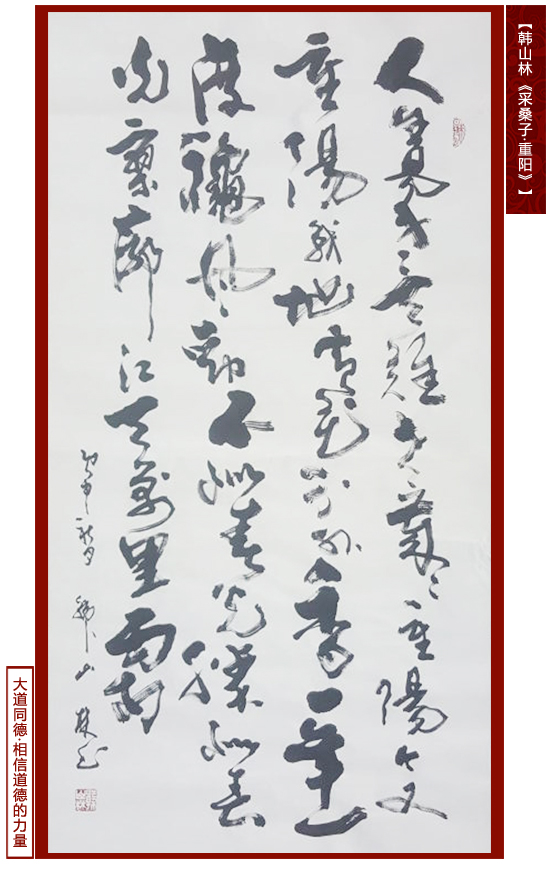 【韩山林《采桑子·重阳》】
人生易老天難老歲〻重陽今又
重陽戰地黃花分外香一年一
度龝風勁不似春光勝似春
光寥廓江天萬里霜
韓山林
大道同德·相信道德的力量